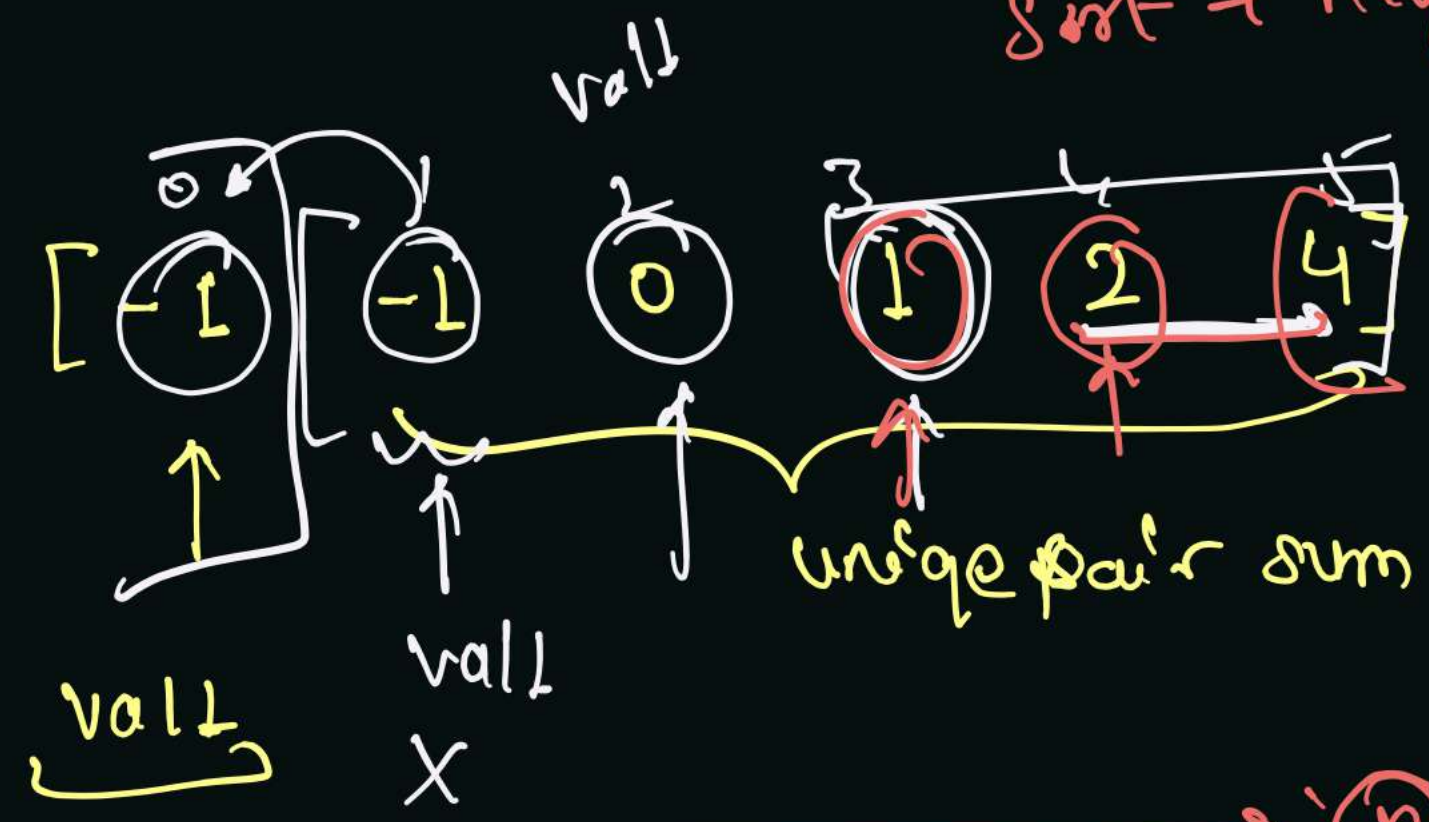 Sort +
val1
0 1 2 3 4 5
[ -1 -1 0 1 2 4 ]
uniqe pair sum
val1
val1
X